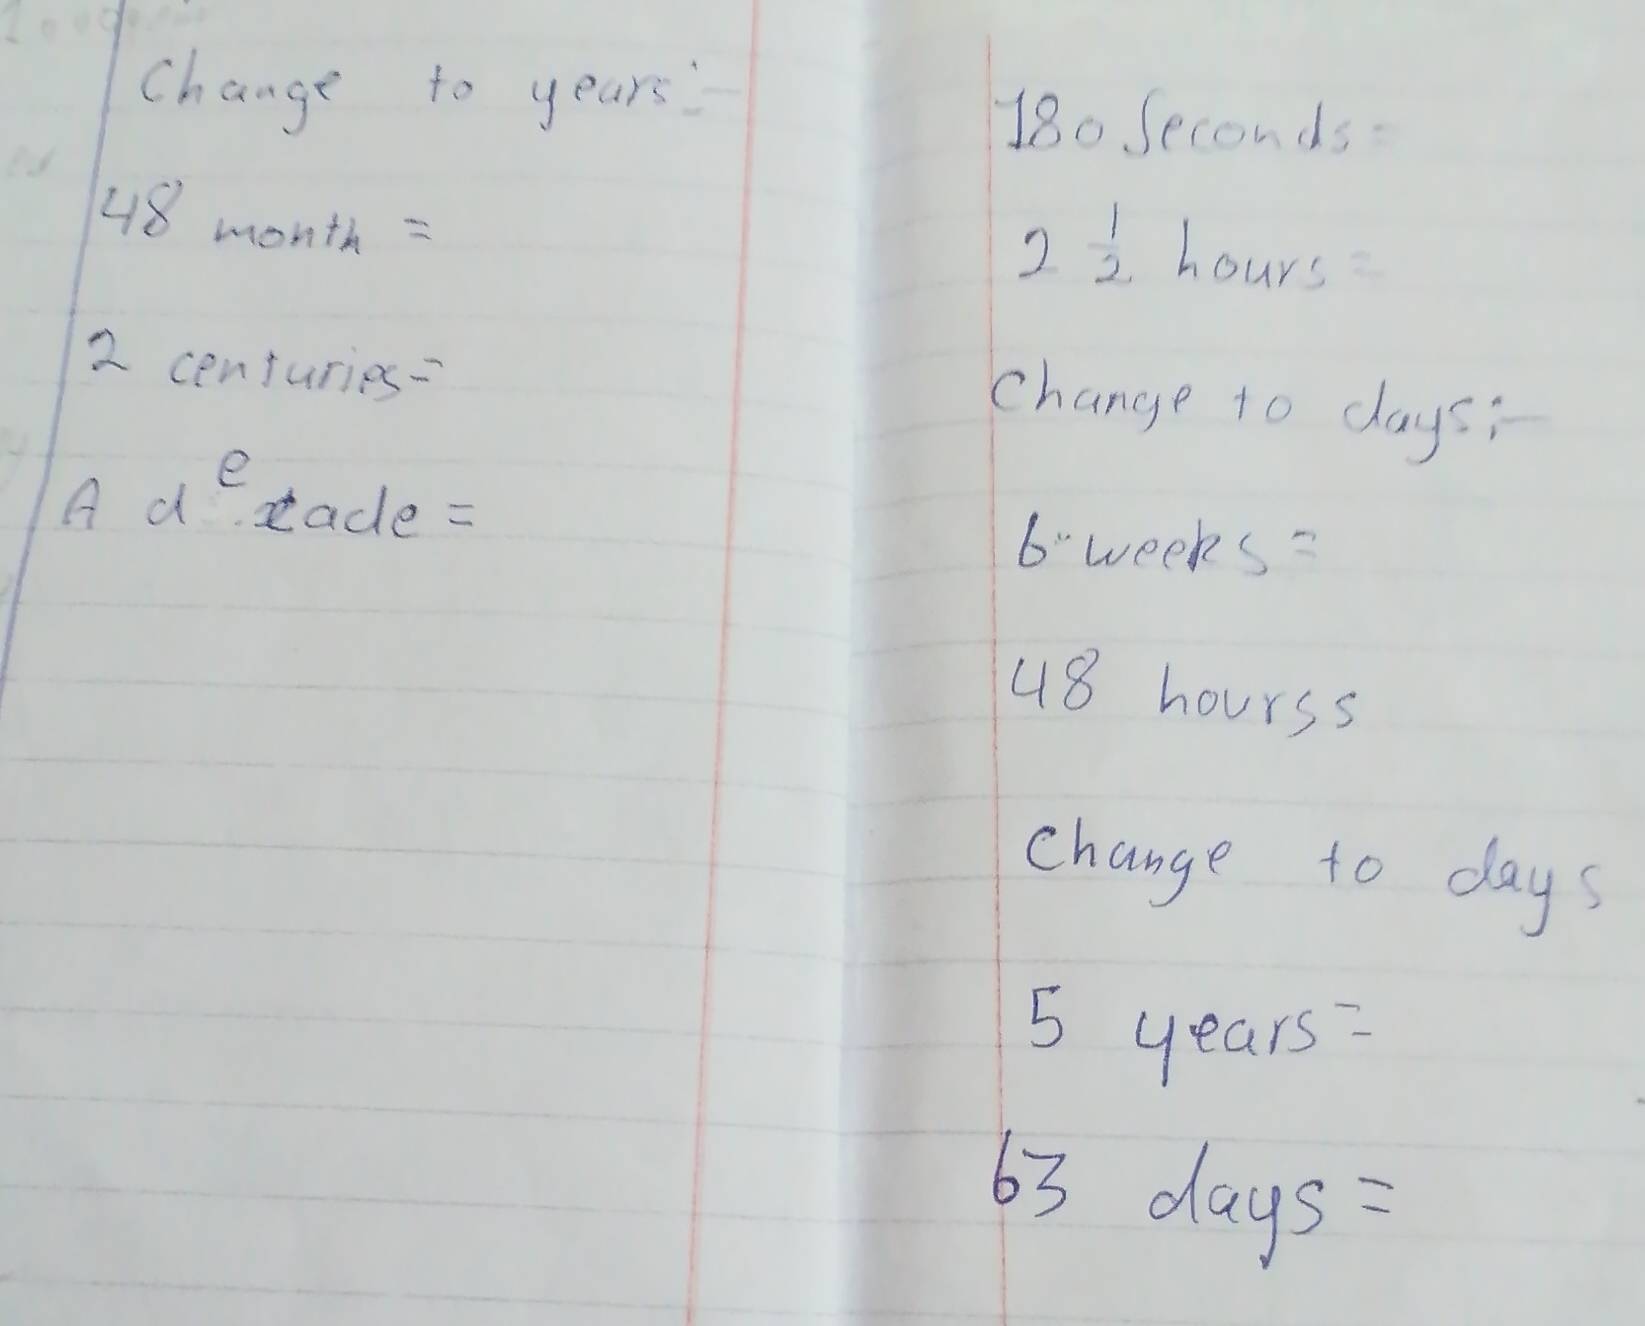 Change to years:-
48 month =
2 centuries=
A decade =
180 Seconds=
2 1/2 hours=
Change to days:-
6 weeks =
48 hourss
Change to days
5 years=
63 days =